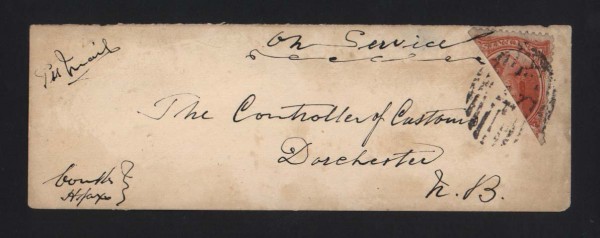 On Service
Pr Mail
The Controller of Customs
Dorchester
N. B.
Hfax